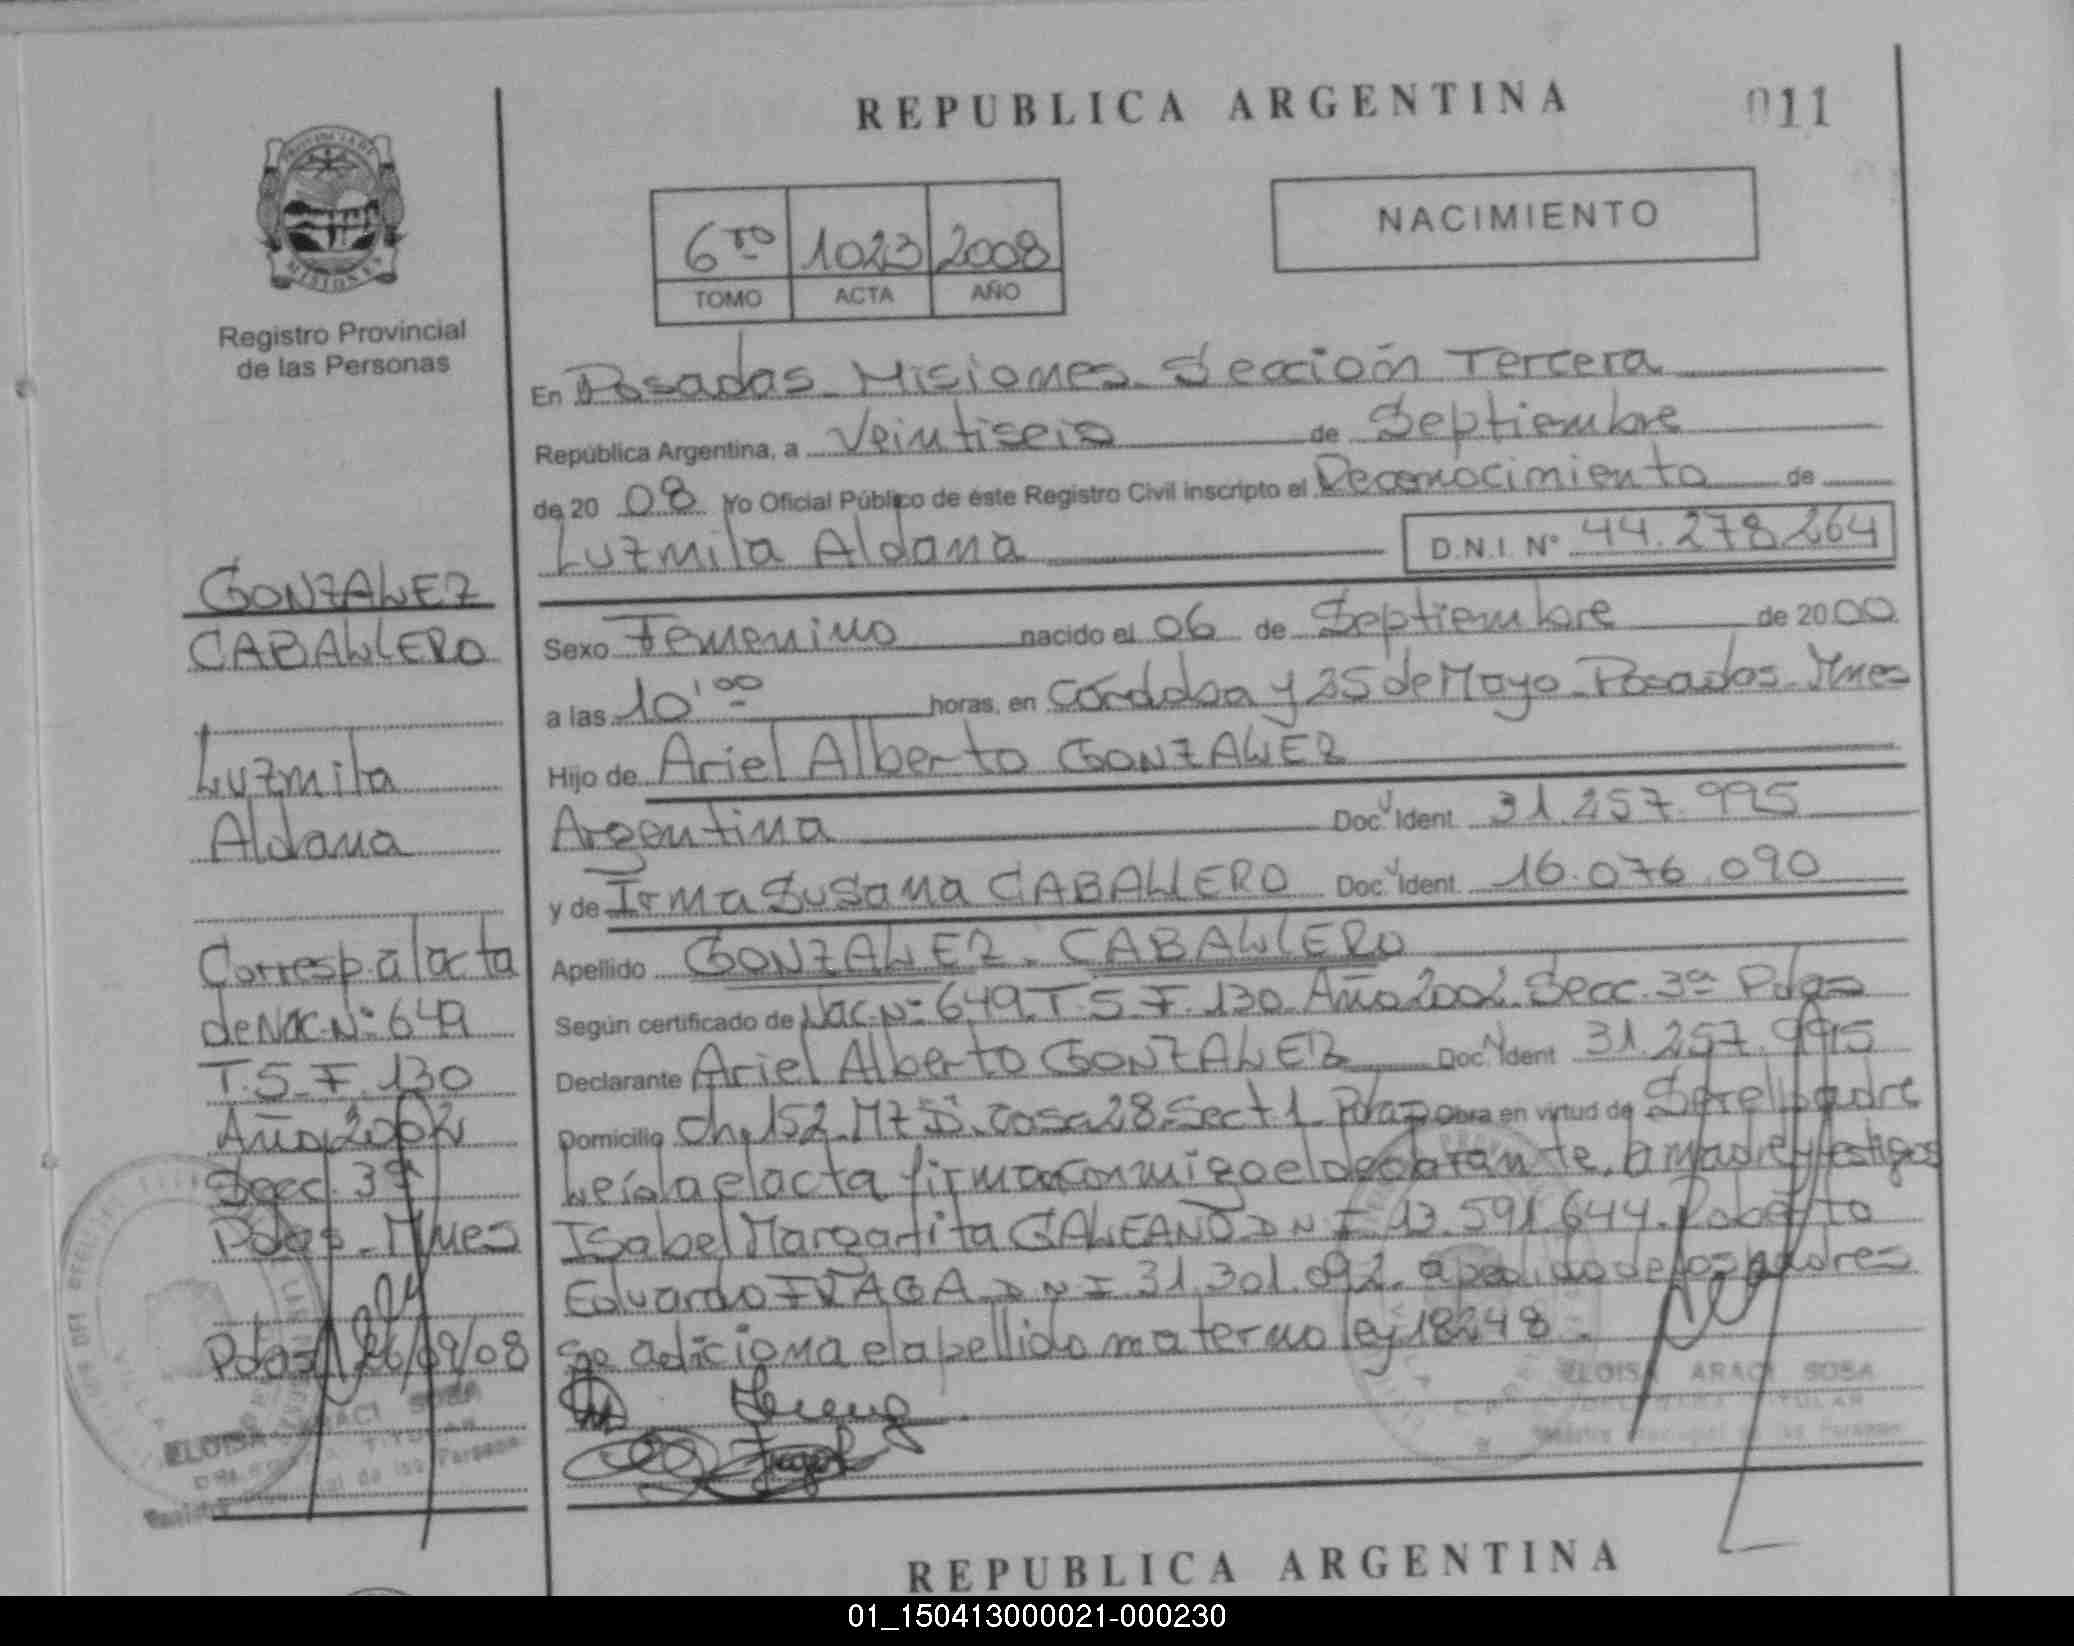 REPUBLICA ARGENTINA
011
PROVINCIA DE
MISIONES
Registro Provincial
de las Personas
6TO 1023 2008
TOMO ACTA AÑO
NACIMIENTO
En Posadas Misiones Sección Tercera
República Argentina, a Veintiseis de Septiembre
de 20 08 Yo Oficial Público de éste Registro Civil inscripto el Reconocimiento de
Luzmila Aldana D.N.I. Nº 44.278.264
Sexo Femenino nacido el 06 de Septiembre de 2000
a las 10'00 horas, en Córdoba y 25 de Mayo Posadas Mnes
Hijo de Ariel Alberto GONZALEZ
Argentina Doc. Ident. 31.257.995
y de Irma Susana CABALLERO Doc. Ident. 16.076.090
Apellido GONZALEZ - CABALLERO
Según certificado de Nac. Nº 649 T. 5 F. 130 Año 2002 Secc. 3ª Pdas
Declarante Ariel Alberto GONZALEZ Doc. Ident 31.257.995
Domicilio ch. 152 Mz D Casa 28 Sect 1 Pdas Obra en virtud de Ser el padre
Leída el acta firma conmigo el declarante, la madre y testigos
Isabel Margarita GALEANO D N I 13.591.644. Roberto
Eduardo FRAGA D N I 31.301.092. a pedido de los padres
Se adiciona el apellido materno ley 18248.
ELOISA ARACI SOSA
DELEGADA TITULAR
GONZALEZ
CABALLERO
Luzmila
Aldana
Corresp. al acta
de Nac. Nº 649
T. 5 F. 130
Año 2002
Secc. 3ª
Pdas Mnes
Pdas 26/09/08
ELOISA ARACI SOSA
TITULAR
REPUBLICA ARGENTINA
01_150413000021-000230